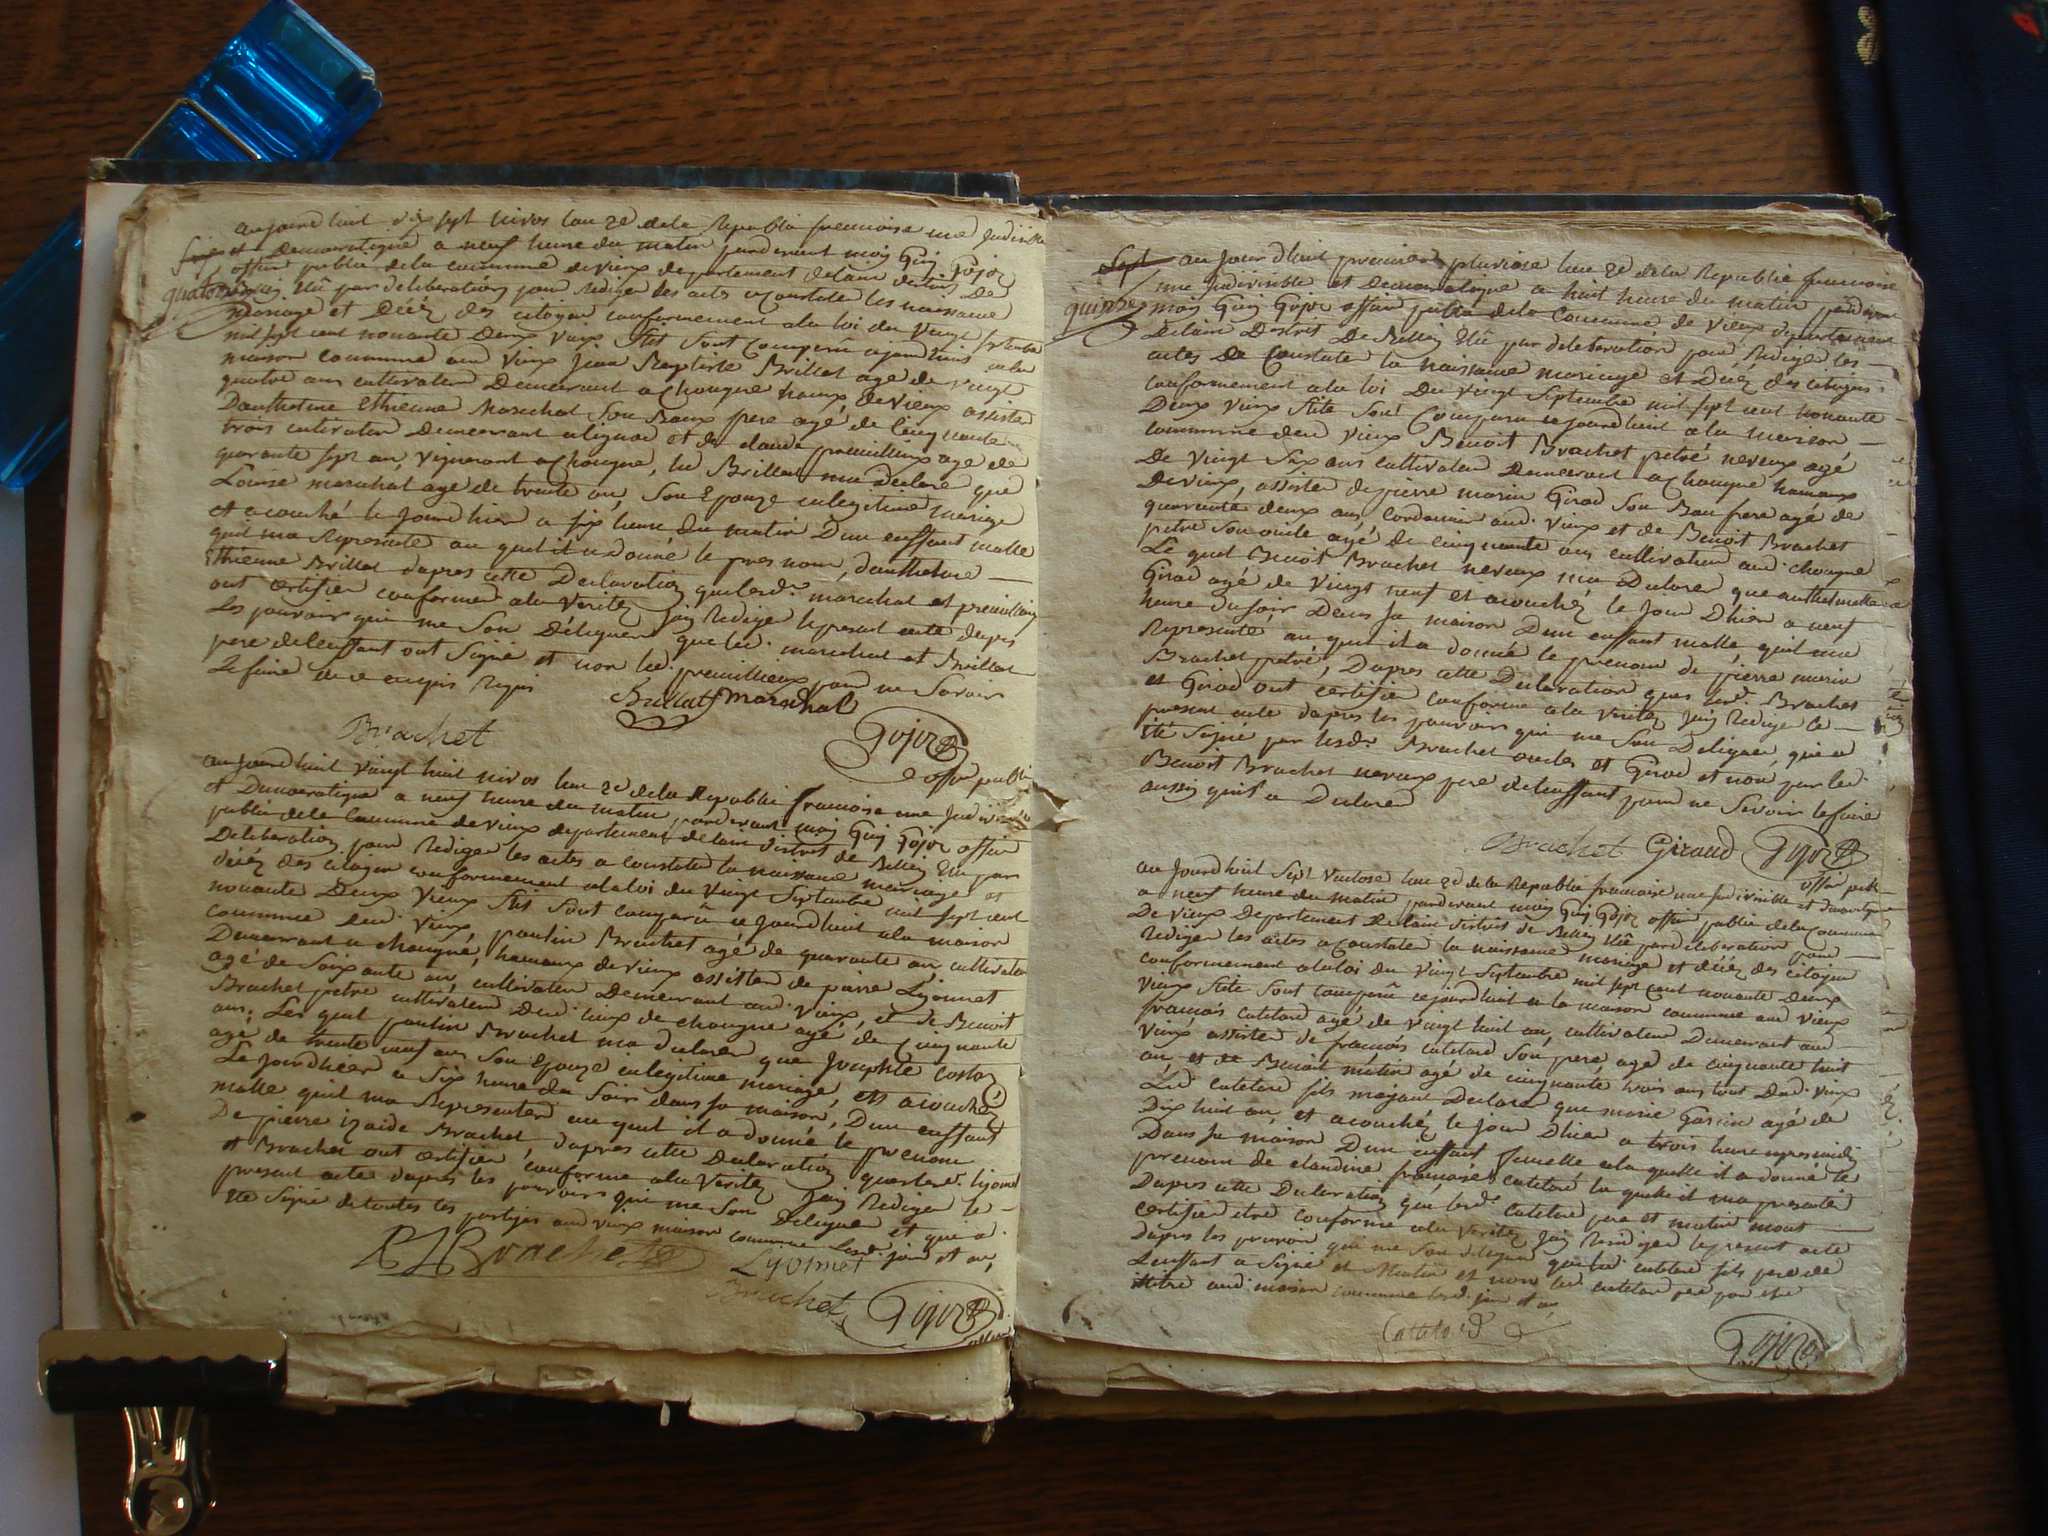 aujourdhuit dix sept nivos lan 2e de la Republie francoise une Indivisible
et democratique a neuf heure du matin pardevent moy Guy Gojoz
quatorze
offier public de la commune de vieux departement delain distris De
Elû par deliberation pour Rediger les actes a Constate les naissance
mariage et Décéz des citoyen conformement a la loi du Vingt septembre
mil sept cent nonante deux vieux stit sont Comparû ajourdhuit a la
maison commune aud Vieux Jean Baptiste Brillat age de vingt
quatre ans cultivateur Demeurant a Chongne hamx de vieux assister
Danthelme Ethienne Marechal son Baux pere agé de Cinquante
trois cultivateur Demeurant alignad et de claude premillieux age de
quarante sept an, vigneront a Chongne, led Brillat ma Declare que
Louise marechal age de trente an, son Epouze enlegitime mariage
et acouché le Jourdhier a six heure du matin D'un enffant malle
quil ma Represente au quel il a donné le presnom, danthelme
Ethienne Brillat dapres cette Declaration que lesd. marechal et premillieux
ont Certifier conformer a la verite, Jay Redige le present acte dapres
les pouvoirs qui me son Déléguer que led. marechal et Brillat
pere de lenffant ont signe et non led. premillieux pour ne savoir
le faire de ce enquis Requis
Brillat Marechal
Brachet
Gojoz
offier public
aujourdhuit vingt huit nivos lan 2e de la Republie francoise une Indivisible
et Democratique a neuf heure du matin pardevant moy Guy Gojoz offier
public de la Commune de vieux departement delain distris de Belley Elu par
Deliberation pour Rediger les actes a constate la naissance mariage et
décéz des citoyen conformement a la loi du vingt septembre mil sept cent
nonante Deux Vieux stit sont comparû ce jourdhuit a la maison
commune dud. vieux, paulin Brachet agé de quarante an cultivateur
Demeurant a chongne, hamaux de vieux assister de pierre Lyonnet
agé de soixante an, cultivateur Demeurant aud Vieux, et de Benoit
Brachet petre cultivateur Dud. lieux de chongne agé de cinquante
ans, Lequel paulin Brachet ma declarer que Josephte Costaz
age de trente neuf an son Epouze enlegitime mariage, ett acouchéz
Le Jourdhier a six heure du soir dans sa maison, D'un enffant
malle quil ma Representer au quel il a donné le prenom
De pierre izaide Brachet, dapres cette Declaration que lesd. Lyonet
et Brachet ont Certifier, conforme a la Verite, Jay Rediger le
present acte dapres les pouvoirs qui me son Deleguer et qui a
ete signe de toutes les partyes aud vieux maison commune lesd. jour et an,
Brachet
Lyonnet
Brachet
Gojoz
Sept
au Jour dhuit premier pluviose lan 2e de la Republie francoise
quinze
une Indivisible et Democratique a huit heure du matin pardevant
moy Guy Gojoz offier public de la Commune de Vieux departement
Delain Distris De Belley Elû par deleberation pour Rediger les
actes De Constate la naissance mariage et Décéz des citoyens
conformement a la loi du Vingt septembre mil sept cent nonante
Deux vieux stite sont Comparu cejourdhuit a la maison
commune dud vieux Benoit Brachet petre neveux agé
De vingt six ans cultivateur Demeurant a Chongne hamaux
Devieux, assister de pierre marin Girod son Bau frere agé de
quarante deux an, Cordonnier aud. vieux et de Benoit Brachet
petre son oncle agé de cinquante an cultivateur aud. chongne
Le quel Benoit Brachet neveux ma Declarer que anthelmette
Girod agé de vingt neuf et acouchéz le Jour Dhier a neuf
heure du soir Dans sa maison D'un enffant malle, quil ma
Represente au quel il a donné le prenom de pierre marin
Brachet petré, Dapres cette Declaration ques lesd. Brachet
et Girod ont certifie conforme a la verite, Jay Redige le
present acte dapres les pouvoirs qui me son Deleguer, qui a
été signé par lesdt. Brachet oncle et Girod et non par led
Benoit Brachet neveux pere de lenffant pour ne Savoir lefaire
ausy quil a Declarer
Brachet Giraud Gojoz
offier public
au Jourdhuit sept Ventose lan 2e de la Republie francoise une Indivisible et Democratique
a neuf heure du matin pardevant moy Guy Gojoz offier public de la Commune
De vieux Departement Delain distris de Belley Elû par deliberation pour
Rediger les actes a Constater la naissance mariage et décéz des citoyen
conformement a la loi du vingt septembre mil sept cent nonante deux
vieux stite sont comparû cejourdhuit a la maison commune aud vieux
francois cateland agé de vingt huit an, cultivateur Demeurant aud
Vieux assister de francois cateland son pere, age de cinquante huit
an et de Benoit métin agé de cinquante trois ans tout Dud. vieux
Led cateland fils majant Declarer que marie Garin agé de
Dix huit an, et acouchéz le jour Dhier a trois heure apresmidy
Dans sa maison D'un enffant femelle a la quelle il a donné le
prenom de claudine francoise cateland la quelle il ma presenté
Dapres cette Declaration que lesd. cateland pere et matin mont
certifier etre conforme a la verite, Jay Rediger le present acte
Dapres les pouvoir qui me son deleguer que led. cateland fils pere de
Lenffant a signé et Matin et non led cateland pere pour etre
iletré aud. maison commune lesd. jour et an
Gojoz